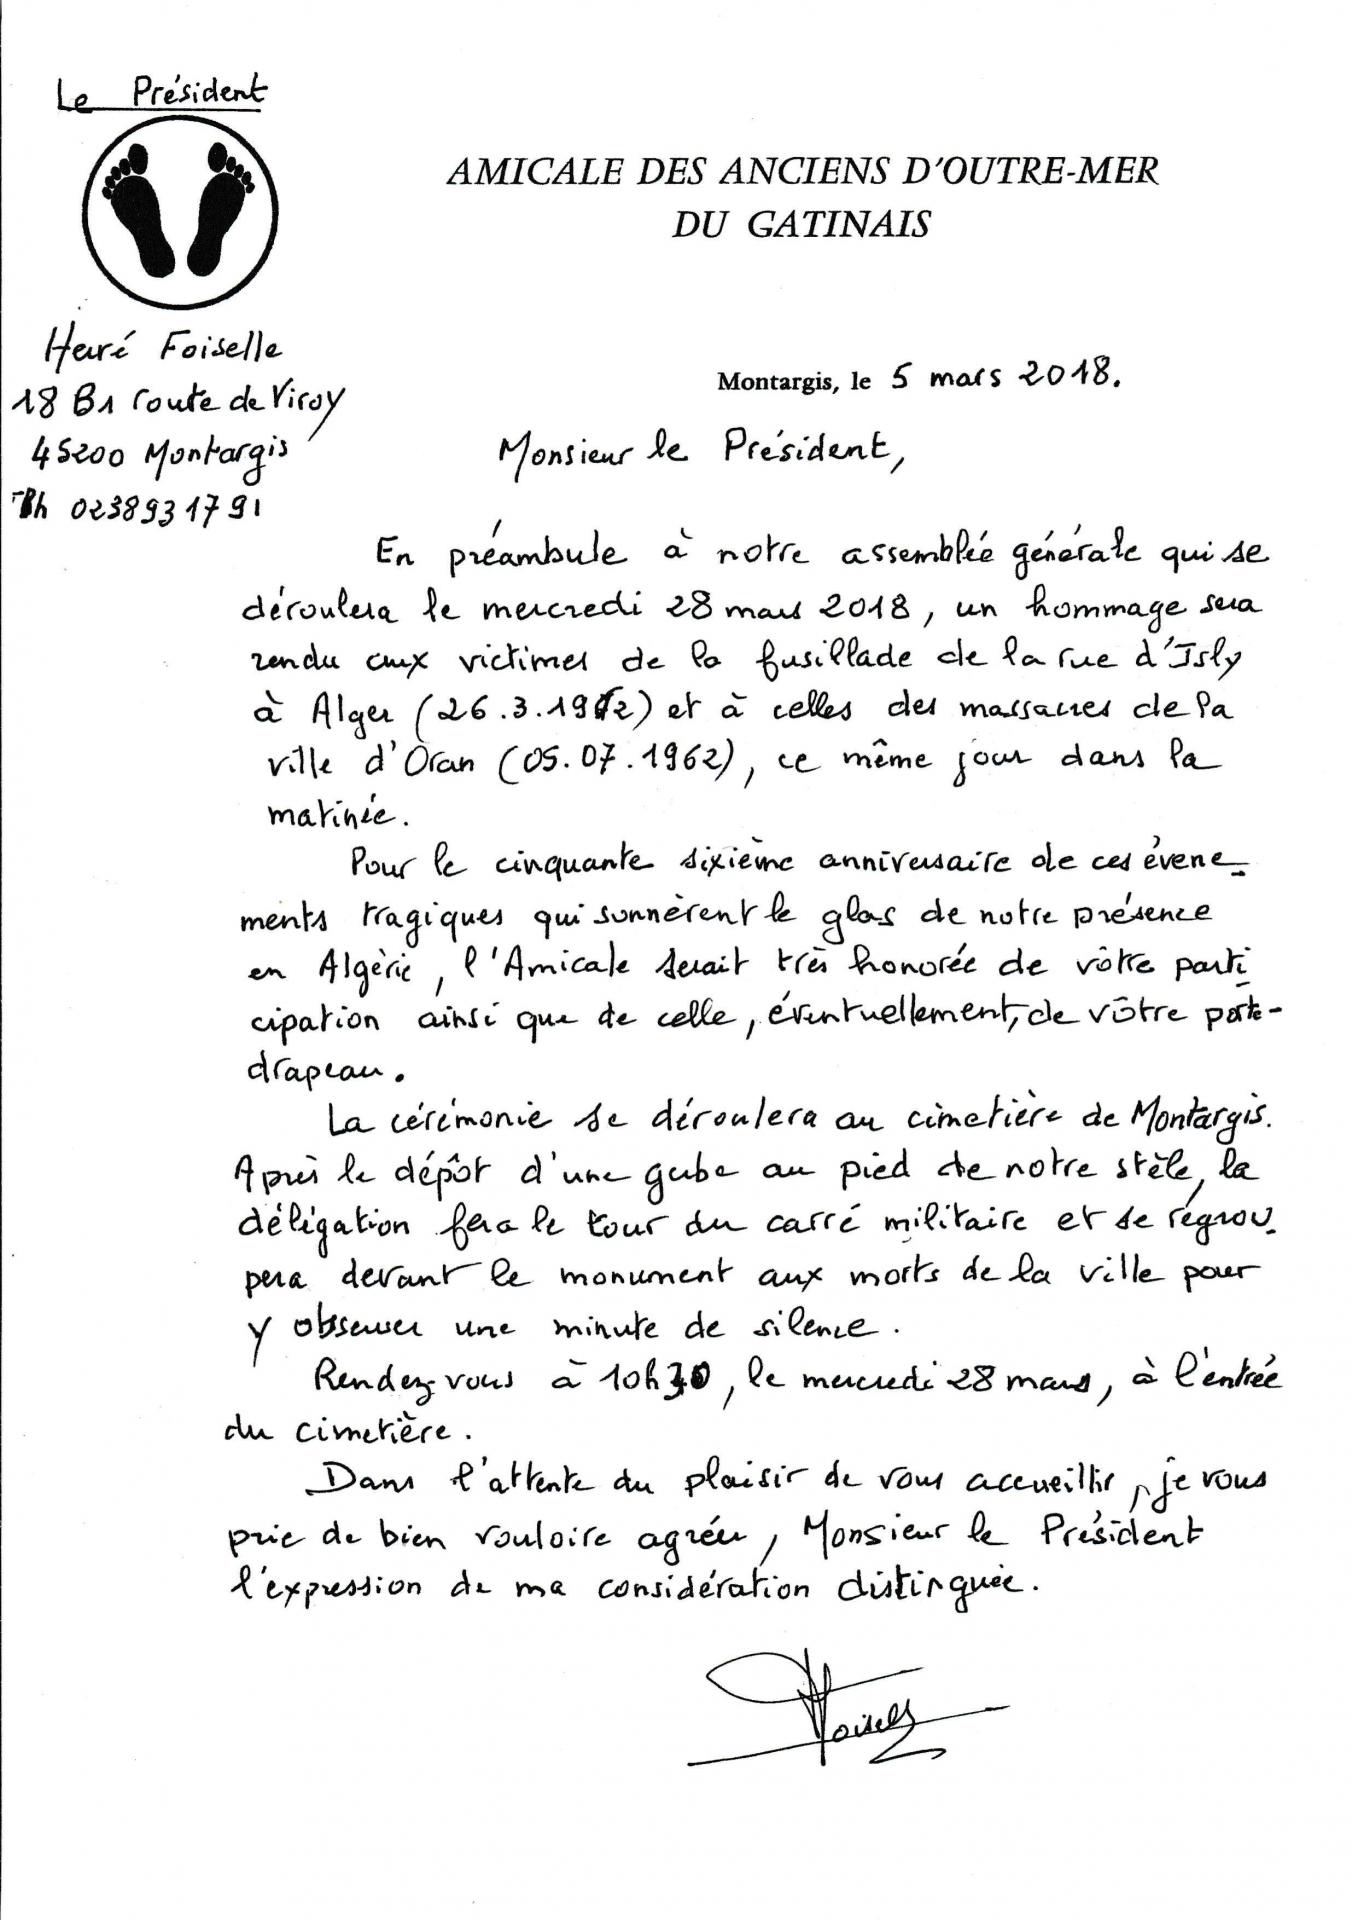 Le Président
AMICALE DES ANCIENS D'OUTRE-MER
DU GATINAIS
Hervé Foiselle
18 B1 route de Viroy
45200 Montargis
Ph 0238931791
Montargis, le 5 mars 2018.
Monsieur le Président,
En préambule à notre assemblée générale qui se
déroulera le mercredi 28 mars 2018, un hommage sera
rendu aux victimes de la fusillade de la rue d'Isly
à Alger (26.3.1962) et à celles des massacres de la
ville d'Oran (05.07.1962), ce même jour dans la
matinée.
Pour le cinquante sixième anniversaire de ces évene-
ments tragiques qui sonnèrent le glas de notre présence
en Algérie, l'Amicale serait très honorée de vôtre parti
cipation ainsi que de celle, éventuellement, de vôtre porte-
drapeau.
La cérémonie se déroulera au cimetière de Montargis.
Après le dépôt d'une gerbe au pied de notre stèle, la
délégation fera le tour du carré militaire et se régrou-
pera devant le monument aux morts de la ville pour
y observer une minute de silence.
Rendez-vous à 10h30, le mercredi 28 mars, à l'entrée
du cimetière.
Dans l'attente du plaisir de vous accueillir, je vous
prie de bien vouloire agréer, Monsieur le Président
l'expression de ma considération distinguée.
Foiselle